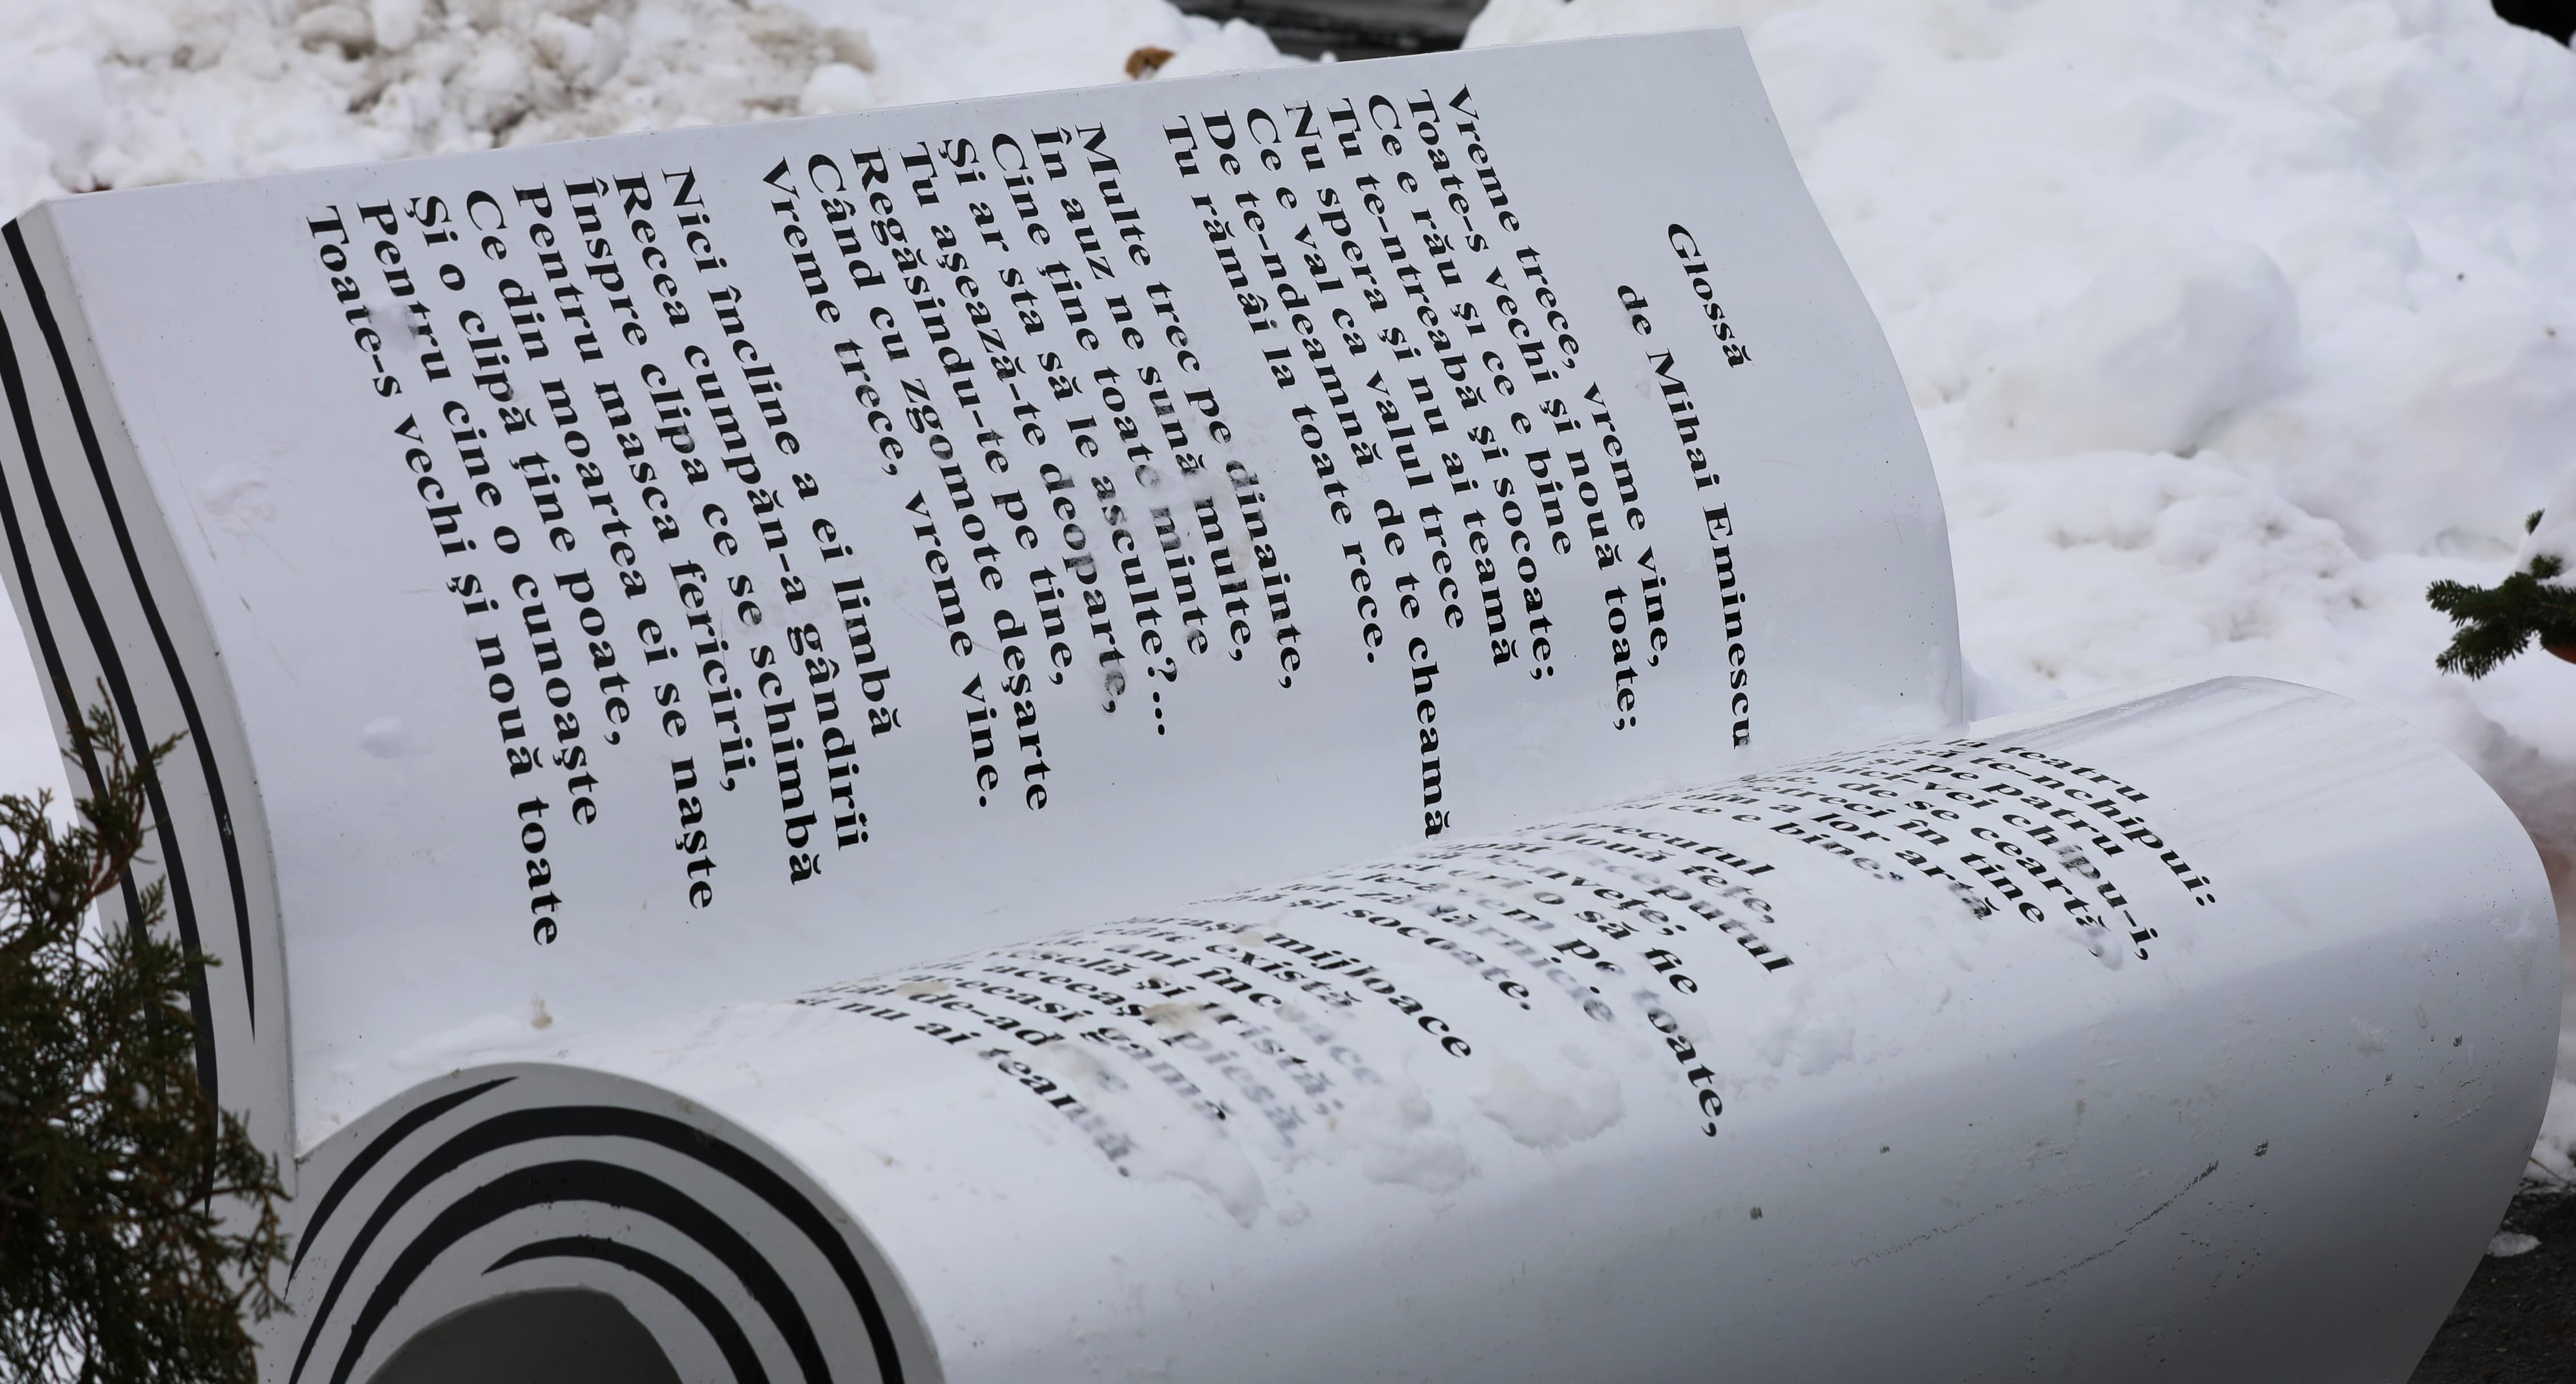 Glossă
de Mihai Eminescu
Vreme trece, vreme vine,
Toate-s vechi şi nouă toate;
Ce e rău şi ce e bine
Tu te-ntreabă şi socoate;
Nu spera şi nu ai teamă
Ce e val ca valul trece
De te-ndeamnă de te cheamă
Tu rămâi la toate rece.
Multe trec pe dinainte,
În auz ne sună multe,
Cine ţine toate minte
Şi ar sta să le asculte?...
Tu aşează-te deoparte,
Regăsindu-te pe tine,
Când cu zgomote deşarte
Vreme trece, vreme vine.
Nici încline a ei limbă
Recea cumpăn-a gândirii
Înspre clipa ce se schimbă
Pentru masca fericirii,
Ce din moartea ei se naşte
Şi o clipă ţine poate,
Pentru cine o cunoaşte
Toate-s vechi şi nouă toate
teatru
să te-nchipui:
pe patru
vei chipu-i,
de se ceartă,
în tine
a lor artă
ce e bine.
trecutul
două feţe,
începutul
o să fie
pe toate,
zădărnicie
şi socoate.
mijloace
există,
ani
şi tristă;
aceeaşi piesă,
gamă
nu ai teamă.